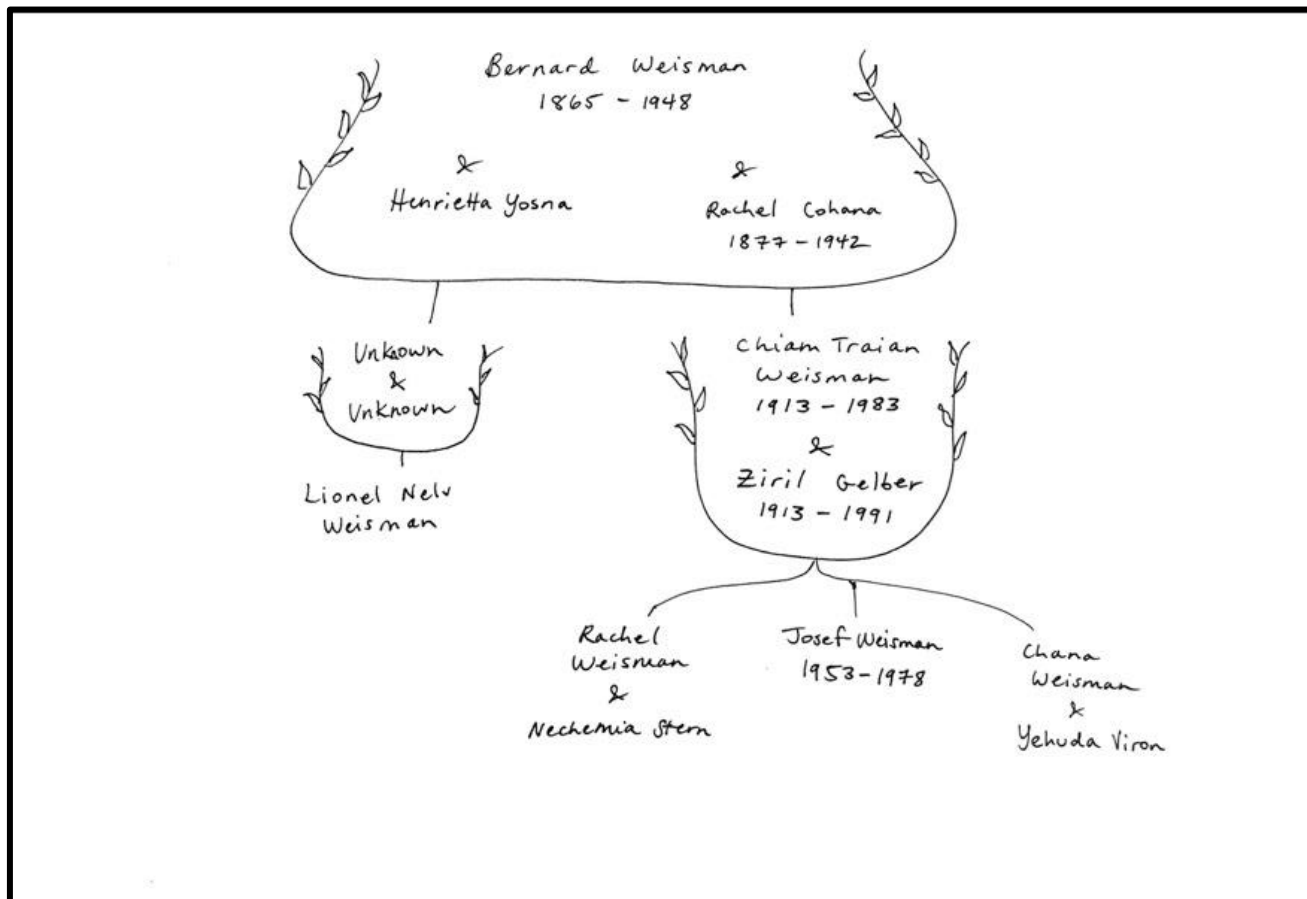 Bernard Weisman
1865 - 1948
&
Henrietta Yosna
&
Rachel Cohana
1877 - 1942
Unknown
&
Unknown
Lionel Nelv
Weisman
Chiam Traian
Weisman
1913 - 1983
&
Ziril Gelber
1913 - 1991
Rachel
Weisman
&
Nechemia Stern
Josef Weisman
1953 - 1978
Chana
Weisman
&
Yehuda Viron